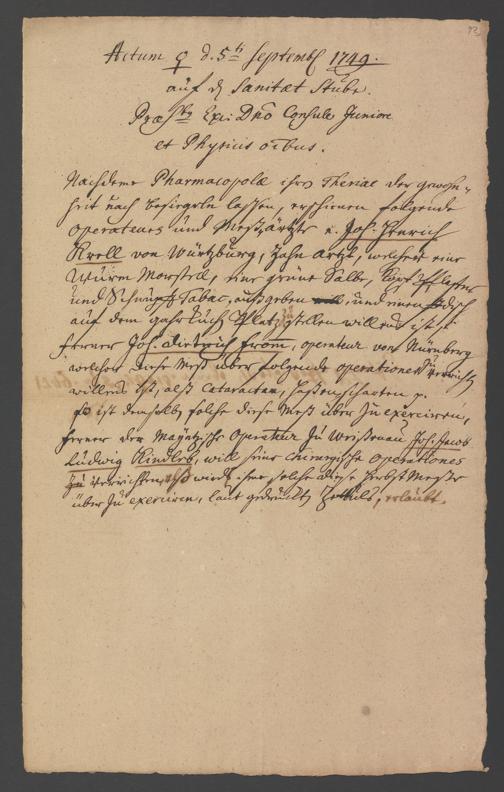 Actum ♀ d. 5t Septembr 1749.
auf der Sanitæt Stube.
Præs. Exc. Dno Consule Juniore
et Physicis oibus.
Nachdeme Pharmacopolæ ihren Theriac der gewohn-
heit nach besiegeln lassen, erschienen folgende
Operateurs und Meßärtzte 1. Joh. Henrich
Kroll von Würtzburg, Zahn Artzt, welcher eine
Wurm Morsell, eine grüne Salbe, Kopf Pflaster
und Schnupf Tabac, außgeben will, und einen tisch
auf dem garkuch Platz zu stellen willens ist
ferner Joh. Dietrich From, operateur von Nürnberg
welcher diese Meß über folgende operationes zu verrichten
willens ist, alß Cataracten, Hasenscharten p.
Es ist demselben solche diese Meß über zu exerciren,
ferner der Mayntzische Operateur zu Weißenau Joh. Jacob
Ludwig Kindler, will seine chirurgische Operationes
zu verrichten wird ihm solche diese Herbst Messe
über zu exerciren, laut gedruckten Zettuls, erlaubt.